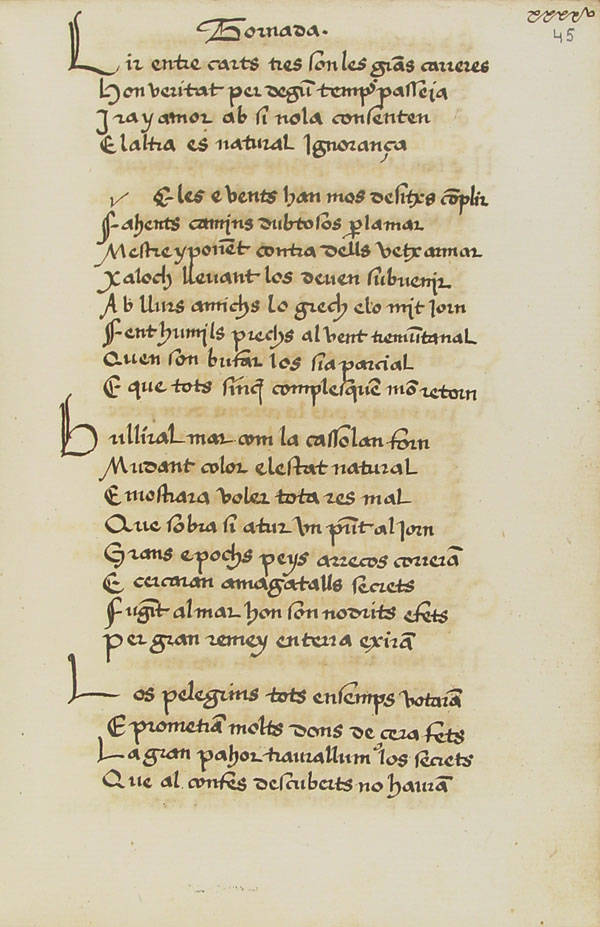 xxxxv
45
Tornada.
Lir entre carts tres son les grãs carreres
Hon veritat per degũ temps passeia
Iray amor ab si nola consenten
E laltra es natural Ignorança
Veles e vents han mos desitxs cõplir
Fahents camins dubtosos p la mar
Mestre y ponẽt contra dells vetx armar
Xaloch llevant los deven subvenir
Ab llurs amichs lo grech elo mit Iorn
Fent humils prechs al vent tremũtanal
Quen son bufar los sia parcial
E que tots sinch complesquẽ mõ retorn
Bulliral mar com la cassolan forn
Mudant color e lestat natural
E mostrara voler tota res mal
Que sobra si atur vn pũt al Iorn
Grans e pochs peys arrecos correrã
E cercaran amagatalls secrets
Fugĩt al mar hon son nodrits e fets
Per gran remey en terra exirã
Los pelegrins tots ensemps votarã
E prometrã molts dons de cera fets
La gran pahor traurallum los secrets
Que al confes descuberts no haurã